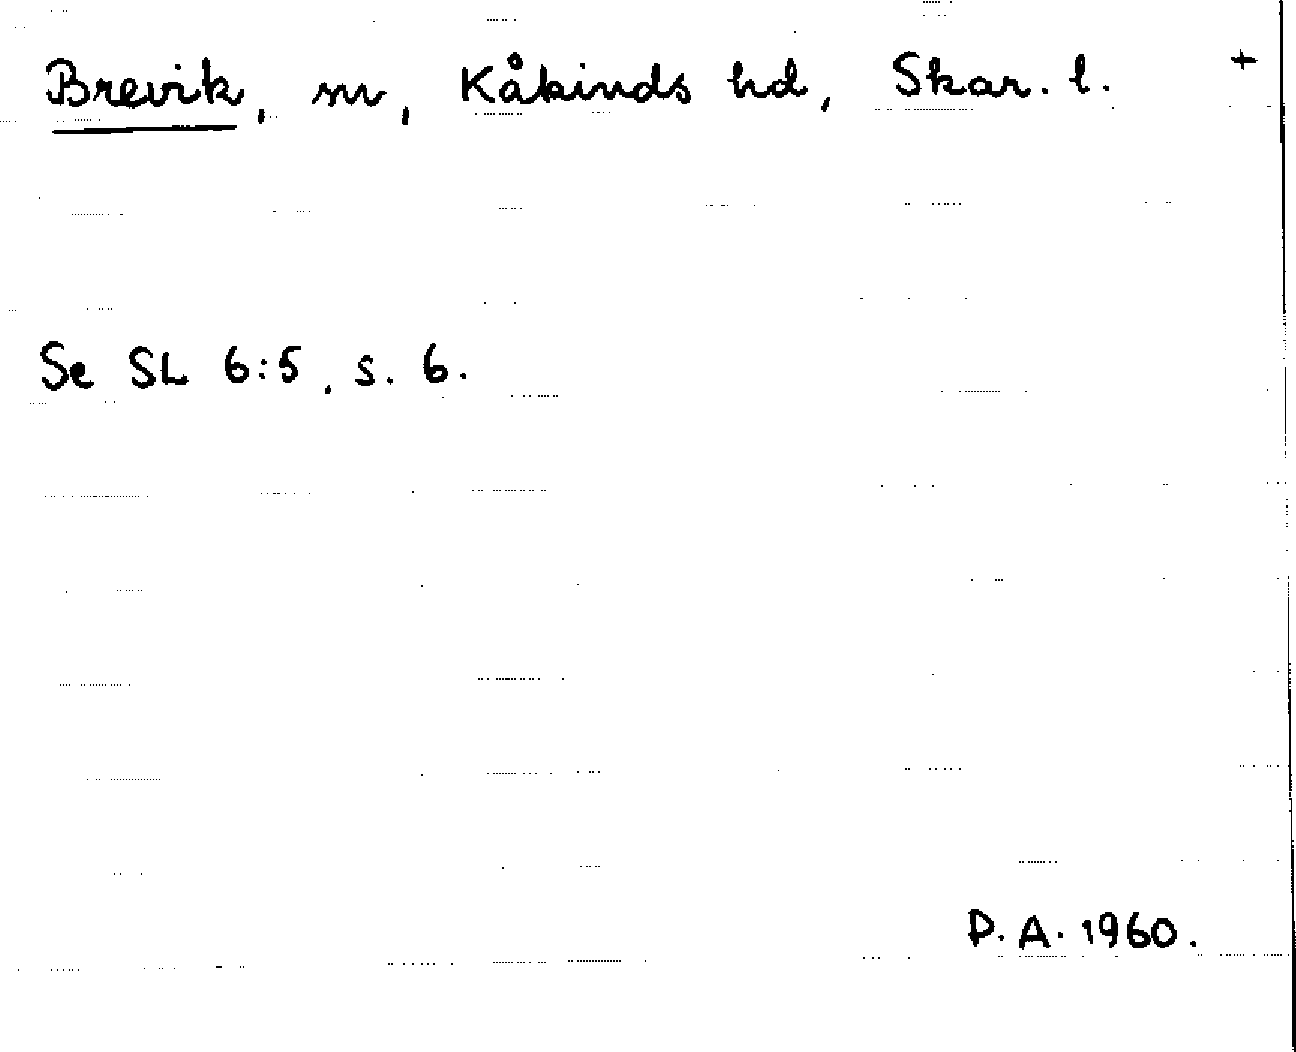 Brevik, m, Kåkinds hd, Skar. l. +
Se SL 6:5, s. 6.
D. A. 1960.